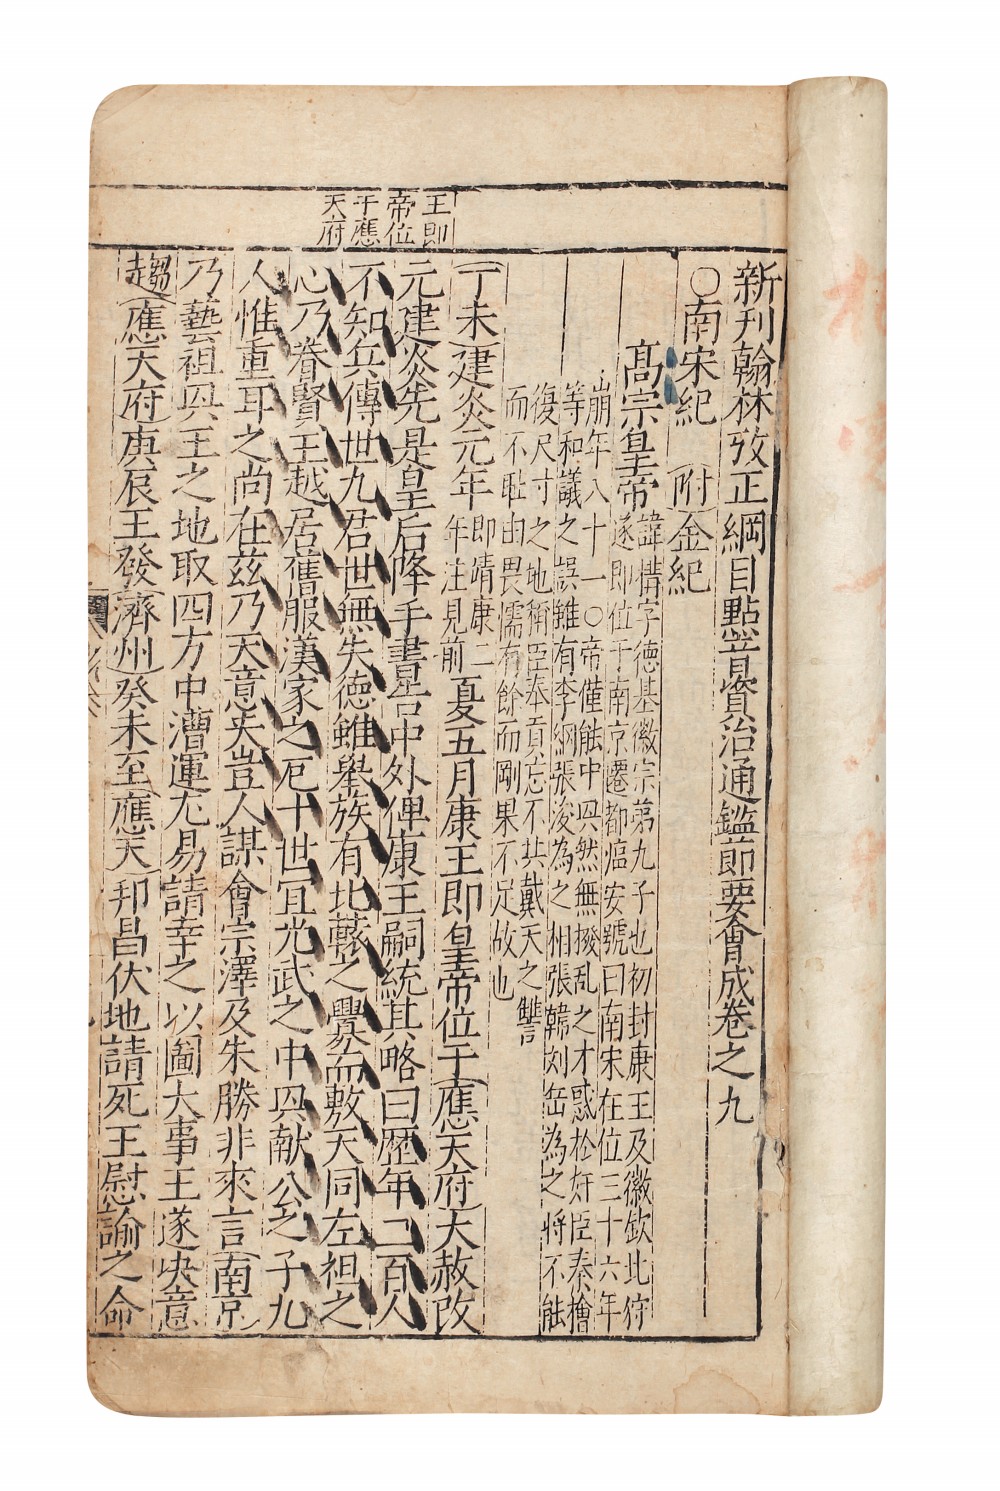 王即
帝位
于應
天府
新刊翰林攷正綱目點音資治通鑑節要會成卷之九
○南宋紀 附 金紀
高宗皇帝 諱構字德基徽宗第九子也初封康王及徽欽北狩
遂即位于南京遷都臨安號曰南宋在位三十六年
崩年八十一○帝僅能中興然無撥乱之才惑於奸臣秦檜
等和議之誤雖有李綱張浚為之相張韓刘岳為之將不能
復尺寸之地稱臣奉貢忘不共戴天之讐
而不耻由畏懦有餘而剛果不足故也
丁未建炎元年 即靖康二年注見前 夏五月康王即皇帝位于應天府大赦改
元建炎先是皇后降手書告中外俾康王嗣統其略曰歷年二百人
不知兵傳世九君世無失德雖舉族有北轅之釁而敷天同左袒之
心乃眷賢王越居舊服漢家之厄十世宜光武之中興献公之子九
人惟重耳之尚在兹乃天意夫豈人謀會宗澤及朱勝非來言南京
乃藝祖興王之地取四方中漕運尤易請幸之以圖大事王遂决意
趨應天府庚辰王發濟州癸未至應天邦昌伏地請死王慰諭之命